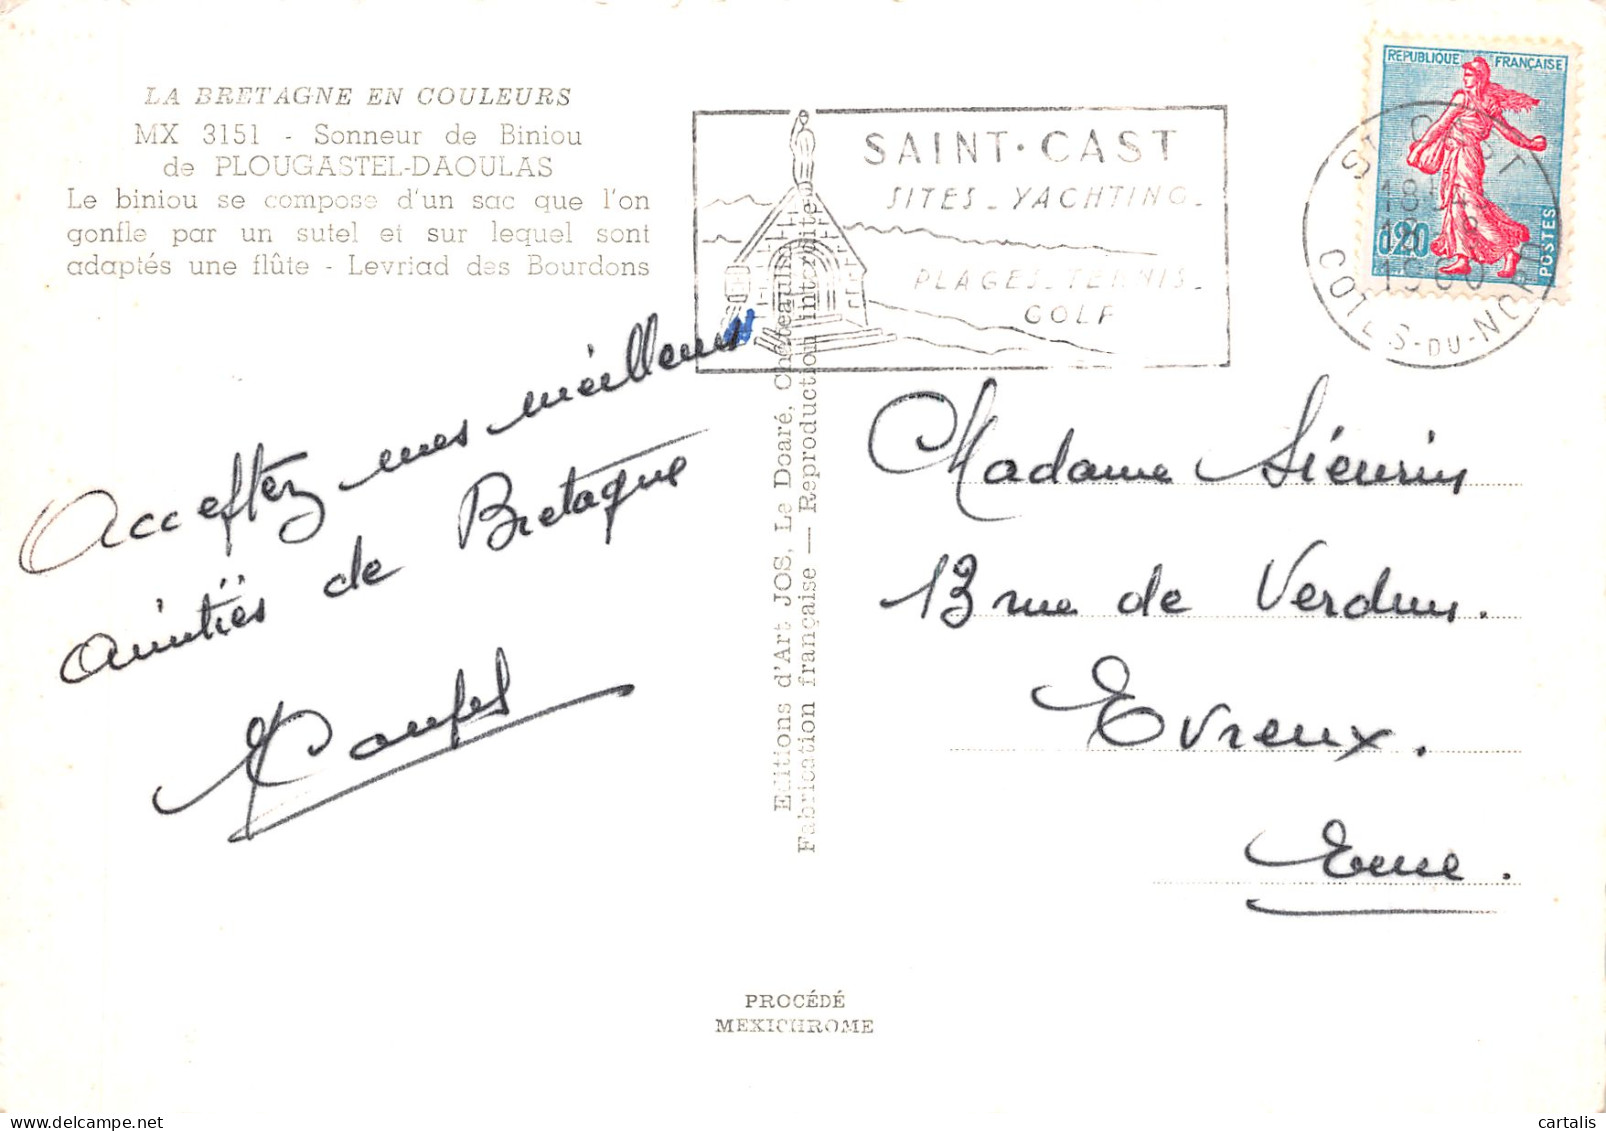 LA BRETAGNE EN COULEURS
MX 3151 - Sonneur de Biniou
de PLOUGASTEL-DAOULAS
Le biniou se compose d'un sac que l'on
gonfle par un sutel et sur lequel sont
adaptés une flûte - Levriad des Bourdons
SAINT-CAST
SITES - YACHTING -
PLAGES - TENNIS -
GOLF
REPUBLIQUE FRANÇAISE
0,20
POSTES
ST CAST
1960
COTES-DU-NORD
Acceptez mes meilleures
amitiés de Bretagne
Madame
13 rue de Verdun.
Evreux.
Eure.
Editions d'Art JOS, Le Doaré, Châteaulin
Fabrication française — Reproduction interdite
PROCÉDÉ
MEXICHROME
cartalis